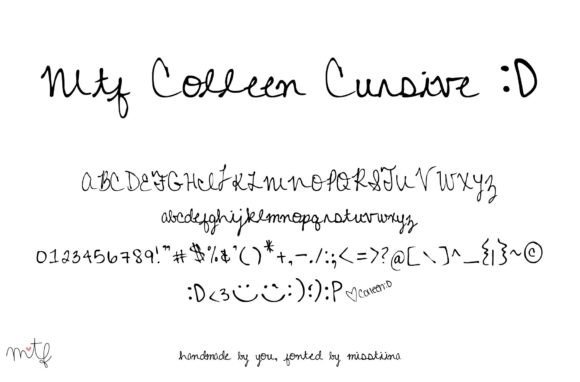 Mtf Colleen Cursive :D
ABCDEFGHIJKLMNOPQRSTUVWXYZ
abcdefghijklmnopqrstuvwxyz
0123456789!"#$%&'()*+,-./:;<=>?@[\]^_{|}~©
:D<3 :) ;) :P ♡Colleen:D
mtf
handmade by you, fonted by misstiina